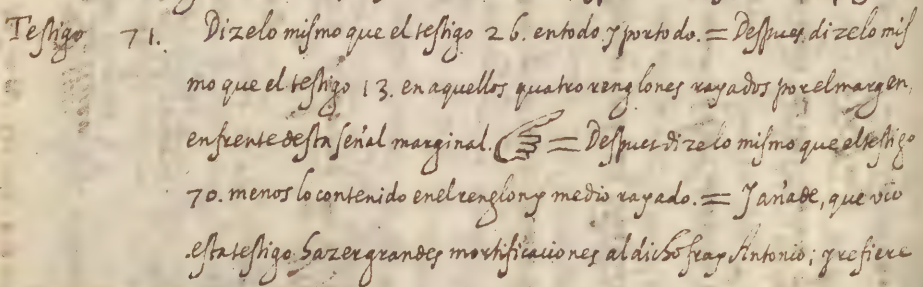 Testigo 71. Dize lo mismo que el testigo 26. en todo, y por todo. = Despues dize lo mis
mo que el testigo 13. en aquellos quatro renglones rayados por el margen,
enfrente desta señal marginal. ☞ = Despues dize lo mismo que el testigo
70. menos lo contenido en el renglon y medio rayado. = Y añade, que vio
esta testigo hazer grandes mortificaciones al dicho fray Antonio; y refiere